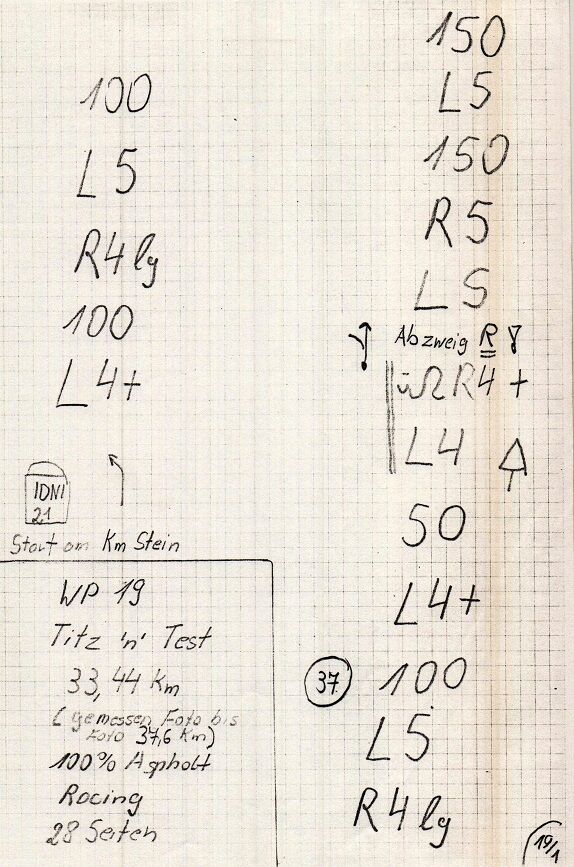 100
L5
R4 lg
100
L4+
IDNI
21
Start am Km Stein
WP 19
Titz 'n' Test
33,44 Km
(gemessen Foto bis
Foto 37,6 Km)
100% Asphalt
Racing
28 Seiten
150
L5
150
R5
L5
Abzweig R
ü Ω R4+
L4
50
L4+
37 100
L5
R4 lg
19/1